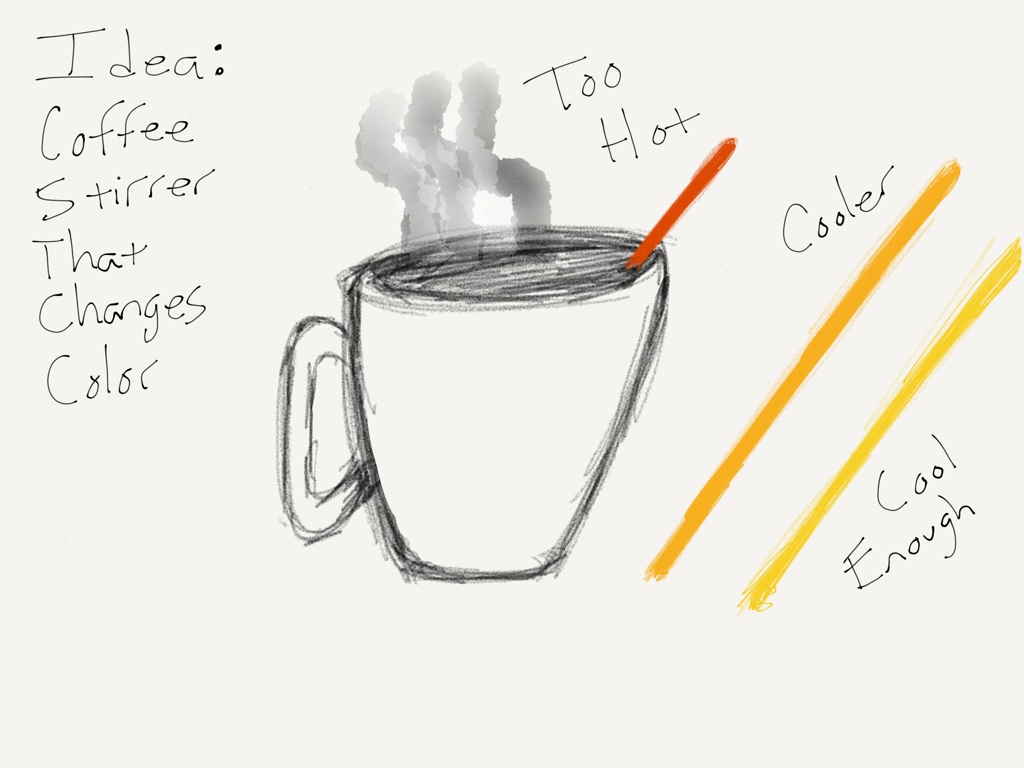 Idea:
Coffee
Stirrer
That
Changes
Color
Too
Hot
Cooler
Cool
Enough